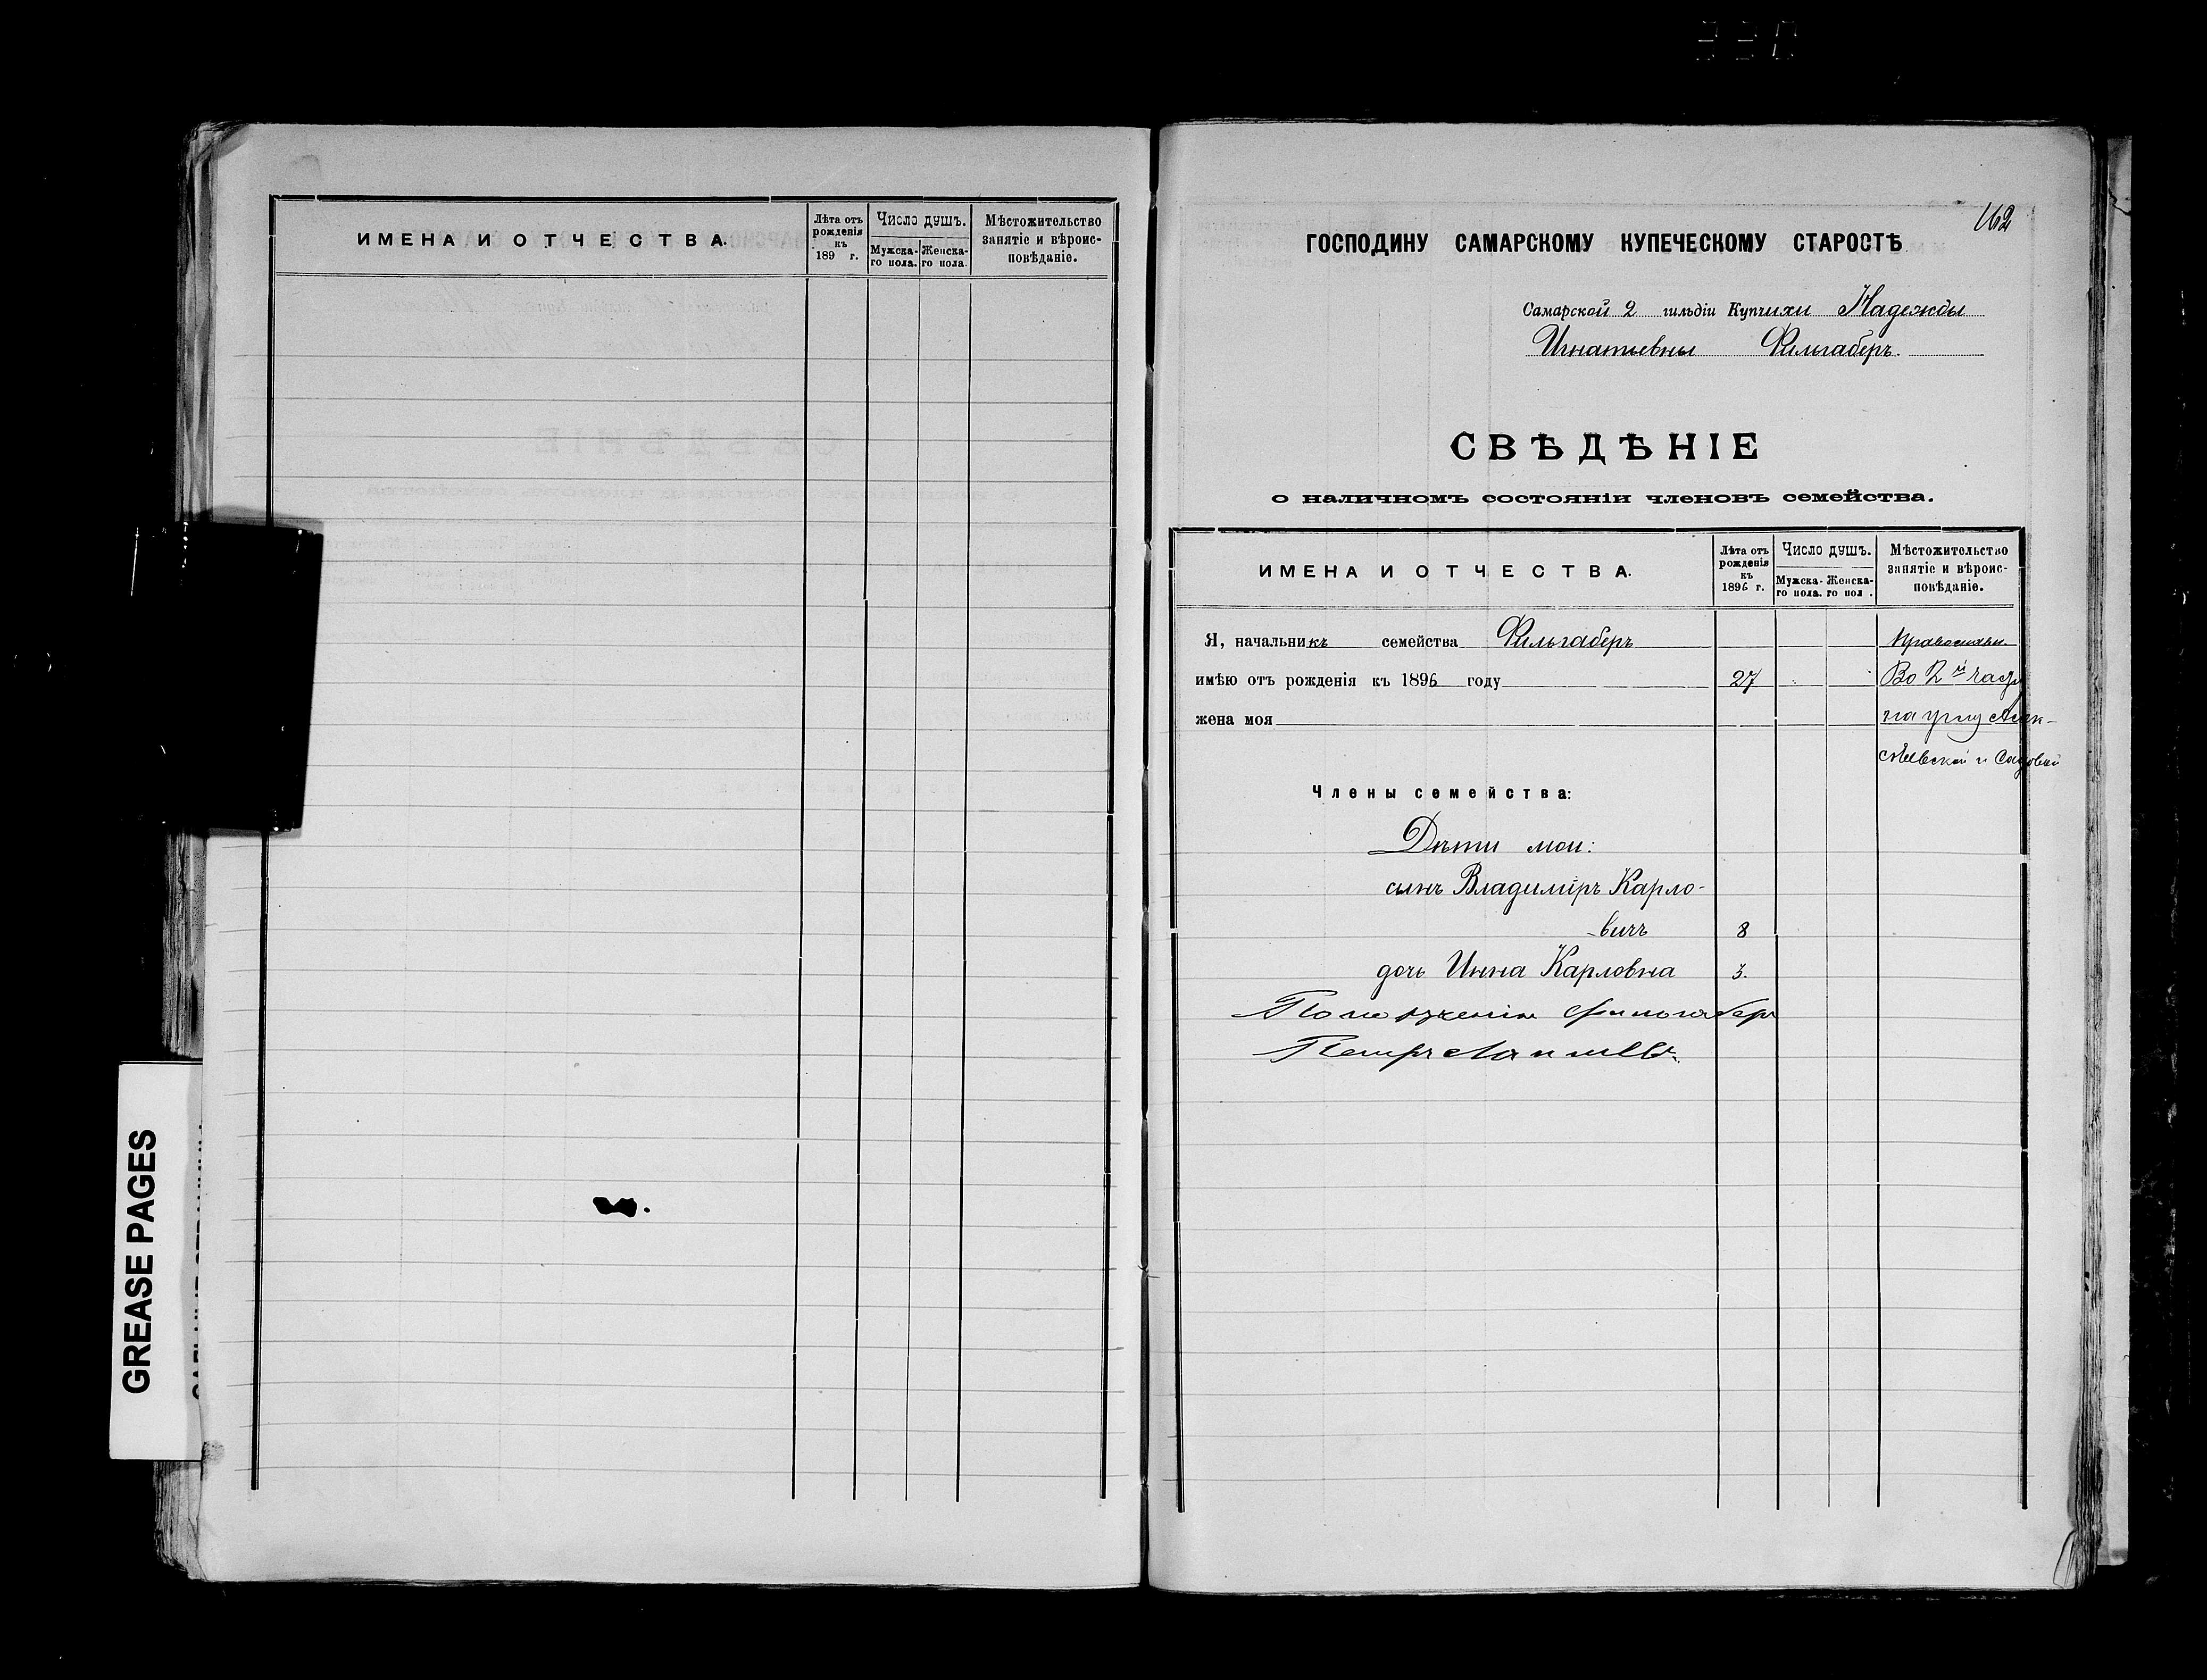 ИМЕНА И ОТЧЕСТВА.
Лѣта отъ рожденія къ 189 г.
Число душъ.
Мужска-го пола.
Женска-го пола.
Мѣстожительство занятіе и вѣроис-повѣданіе.
GREASE PAGES
162
ГОСПОДИНУ САМАРСКОМУ КУПЕЧЕСКОМУ СТАРОСТѢ
Самарской 2 гильдіи Купчихи Надежды
Игнатьевны Фильгаберъ.
СВѢДѢНІЕ
о наличномъ состояніи членовъ семейства.
ИМЕНА И ОТЧЕСТВА.
Лѣта отъ рожденія къ 1896 г.
Число душъ.
Мужска-го пола.
Женска-го пол .
Мѣстожительство занятіе и вѣроис-повѣданіе.
Я, начальникъ семейства Фильгаберъ
имѣю отъ рожденія къ 1896 году 27 Во 2й
жена моя на углу Алек-
сѣевской и Садовой
Члены семейства:
Дѣти мои:
сынъ Владиміръ Карло-
-вичъ 8
дочь Инна Карловна 3.
Фильгаберъ
Петръ